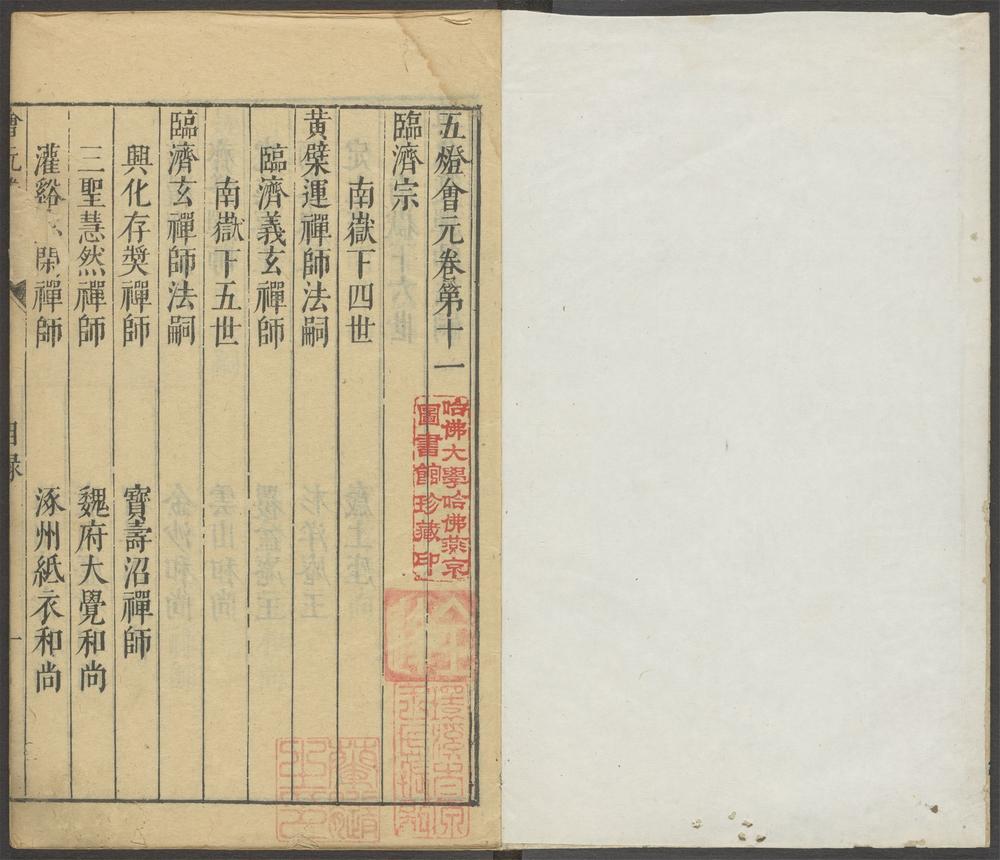 五燈會元卷第十一
臨濟宗
南嶽下四世
黃檗運禪師法嗣
臨濟義玄禪師
南嶽下五世
臨濟玄禪師法嗣
興化存奬禪師 寶壽沼禪師
三聖慧然禪師 魏府大覺和尚
灌谿 閑禪師 涿州紙衣和尚
會元 目録 一
哈佛大學哈佛燕京
圖書館珍藏印